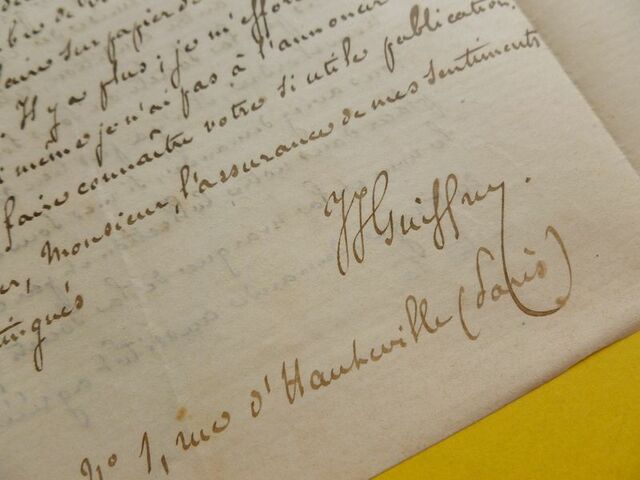 faire sur papier de
. Il y a plus ; je m'effor
même je n'ai pas à l'annoncer
faire connaître votre si utile publication.
, Monsieur, l'assurance de mes sentiments
tingués
JJ Guiffrey.
N° 1, rue d'Hauteville (Paris)